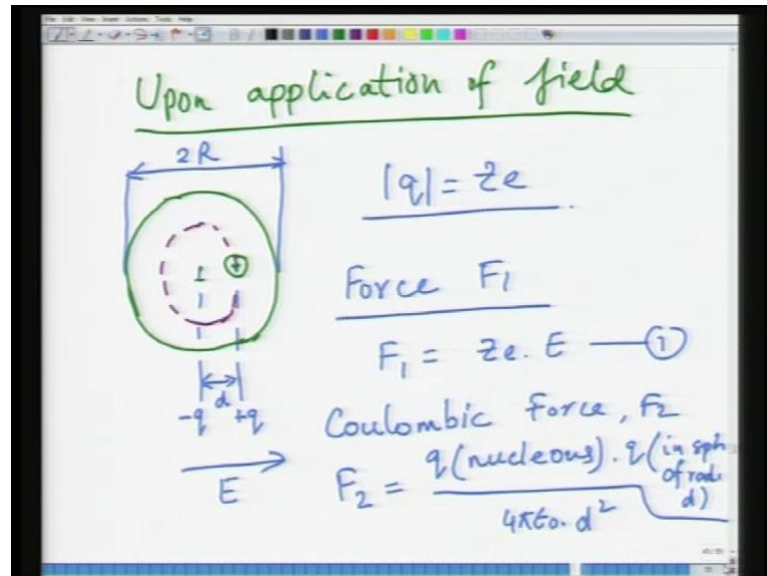 Upon application of field
2R
|q| = Ze
Force F1
F1 = Ze. E —①
d
-q +q
E
Coulombic Force, F2
F2 = q(nucleous). q(in sph
of rad.
d)
4πϵ0. d²